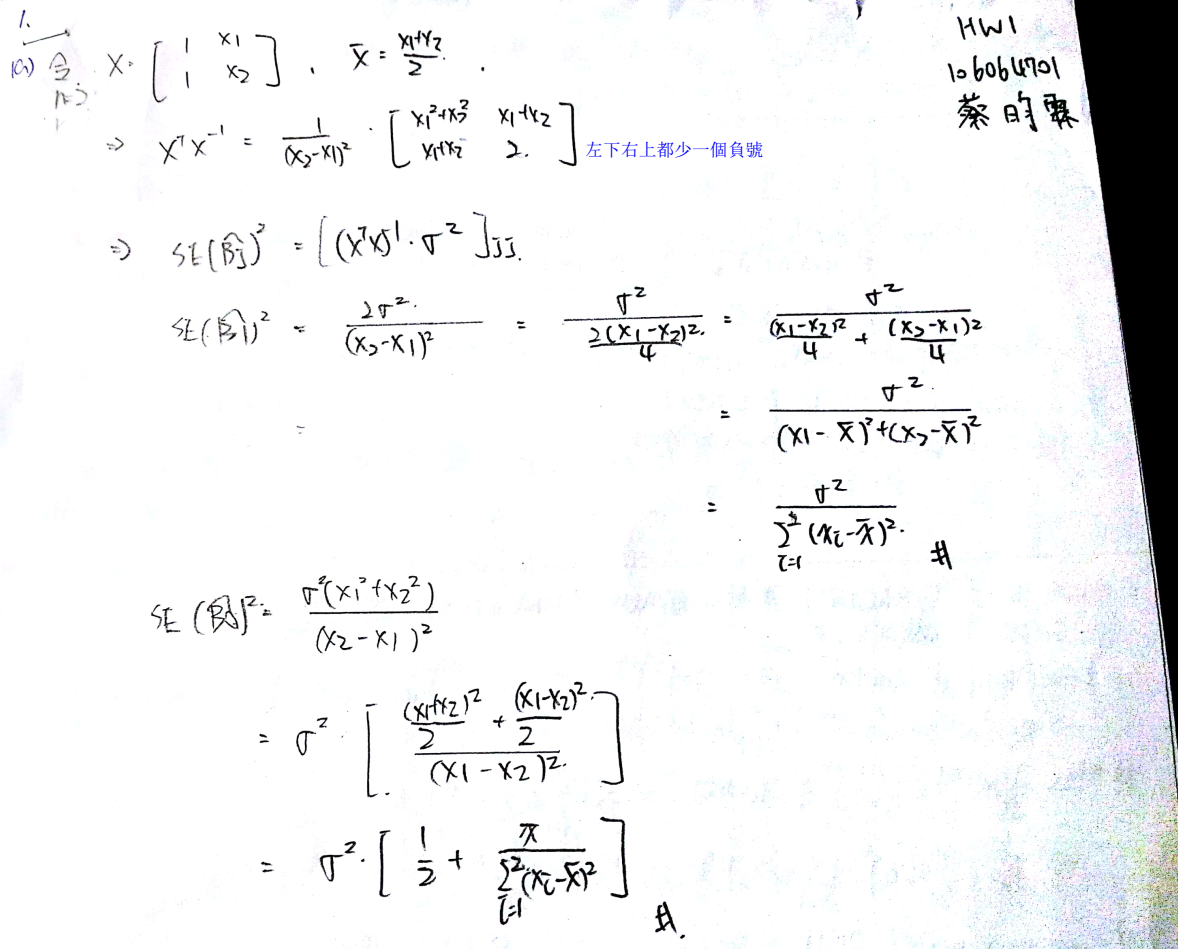 1.
HW1
106064701
(a) 令 n=2 X = [ 1 x1 ; 1 x2 ] , x̄ = (x1+x2)/2 .
⇒ X^T X^-1 = 1/(x2-x1)^2 · [ x1^2+x2^2 x1+x2 ; x1+x2 2. ] 左下右上都少一個負號
⇒ SE(β̂j)^2 = [(X^T X)^-1 · σ^2]jj.
SE(β̂1)^2 = 2σ^2/(x2-x1)^2 = σ^2/(2(x1-x2)^2/4) = σ^2/((x1-x2)^2/4 + (x2-x1)^2/4)
= = σ^2/((x1-x̄)^2+(x2-x̄)^2)
= σ^2/(Σ i=1 (xi-x̄)^2) #
σ^2(x1^2+x2^2)/(x2-x1)^2
= σ^2 · [ ((x1+x2)^2/2 + (x1-x2)^2/2)/(x1-x2)^2 ]
= σ^2 · [ 1/2 + x̄/(Σ^2 i=1 (xi-x̄)^2) ] #.